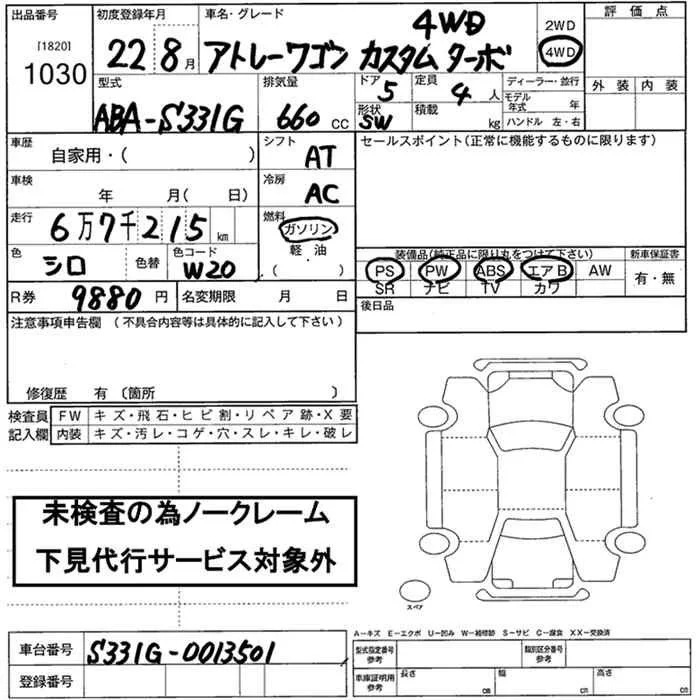 出品番号 初度登録年月 車名・グレード 4WD 2WD 評価点
[1820] 1030 22 8月 アトレーワゴン カスタム ターボ 4WD
外装 内装
型式 排気量 ドア 定員 ディーラー・並行
ABA-S331G 660 CC 5 4人 モデル年式 年
形状 SW 積載 kg ハンドル 左・右
車歴 シフト セールスポイント(正常に機能するものに限ります)
自家用・( ) AT
車検 冷房
年 月( 日) AC
走行 燃料
6万7千215km ガソリン
軽・油
( )
色 色コード 装備品(純正品に限り丸をつけて下さい) 新車保証書
シロ 色替 W20 PS PW ABS エアB AW 有・無
SR ナビ TV カワ
R券 9880円 名変期限 月 日 後日品
注意事項申告欄 (不具合内容等は具体的に記入して下さい)
修復歴 有 (箇所 )
検査員 FW キズ・飛石・ヒビ割・リペア跡・X要
記入欄 内装 キズ・汚レ・コゲ・穴・スレ・キレ・破レ
未検査の為ノークレーム
下見代行サービス対象外
スペア
A－キズ E－エクボ U－凹み W－補修跡 S－サビ C－腐食 XX－交換済
車台番号 S331G-0013501 型式指定番号 参考 類別区分番号 参考
登録番号 車庫証明用 参考 長さ cm 幅 cm 高さ cm